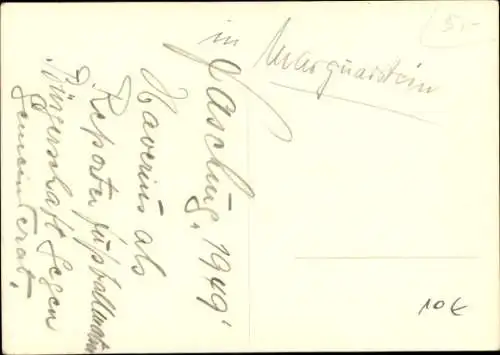 in Marquarstein
Fasching, 1949!
Xaverius als
Reporter Fußballmatch
"Bürgerschaft gegen
Gemeinderat".
5,-
10€